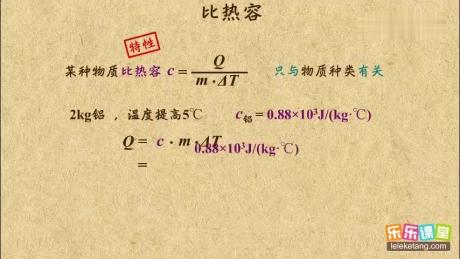 比热容
特性
某种物质比热容 c = Q / m · ΔT 只与物质种类有关
2kg铝 ，温度提高5℃ c铝 = 0.88×10³J/(kg·℃)
Q = c · m · ΔT
= 0.88×10³J/(kg·℃)
乐乐课堂
leleketang.com